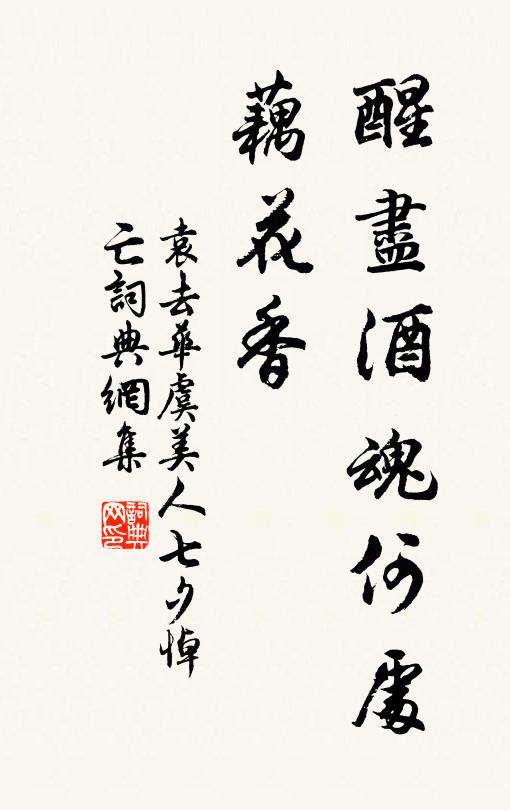 醒盡酒魂何處
藕花香
袁去華虞美人七夕悼
亡詞典網集
詞典网印